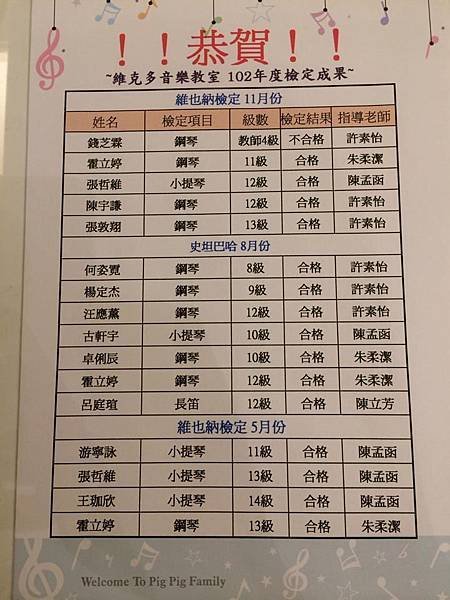 ！！恭賀！！
~維克多音樂教室 102年度檢定成果~
維也納檢定 11月份
姓名 檢定項目 級數 檢定結果 指導老師
錢芝霖 鋼琴 教師4級 不合格 許素怡
霍立婷 鋼琴 11級 合格 朱柔潔
張哲維 小提琴 12級 合格 陳孟函
陳宇謙 鋼琴 12級 合格 許素怡
張敦翔 鋼琴 13級 合格 許素怡
史坦巴哈 8月份
何姿霓 鋼琴 8級 合格 許素怡
楊定杰 鋼琴 9級 合格 許素怡
汪應薰 鋼琴 12級 合格 許素怡
古軒宇 小提琴 10級 合格 陳孟函
卓俐辰 鋼琴 10級 合格 朱柔潔
霍立婷 鋼琴 12級 合格 朱柔潔
呂庭瑄 長笛 12級 合格 陳立芳
維也納檢定 5月份
游寧詠 小提琴 11級 合格 陳孟函
張哲維 小提琴 13級 合格 陳孟函
王珈欣 小提琴 14級 合格 陳孟函
霍立婷 鋼琴 13級 合格 朱柔潔
Welcome To Pig Pig Family